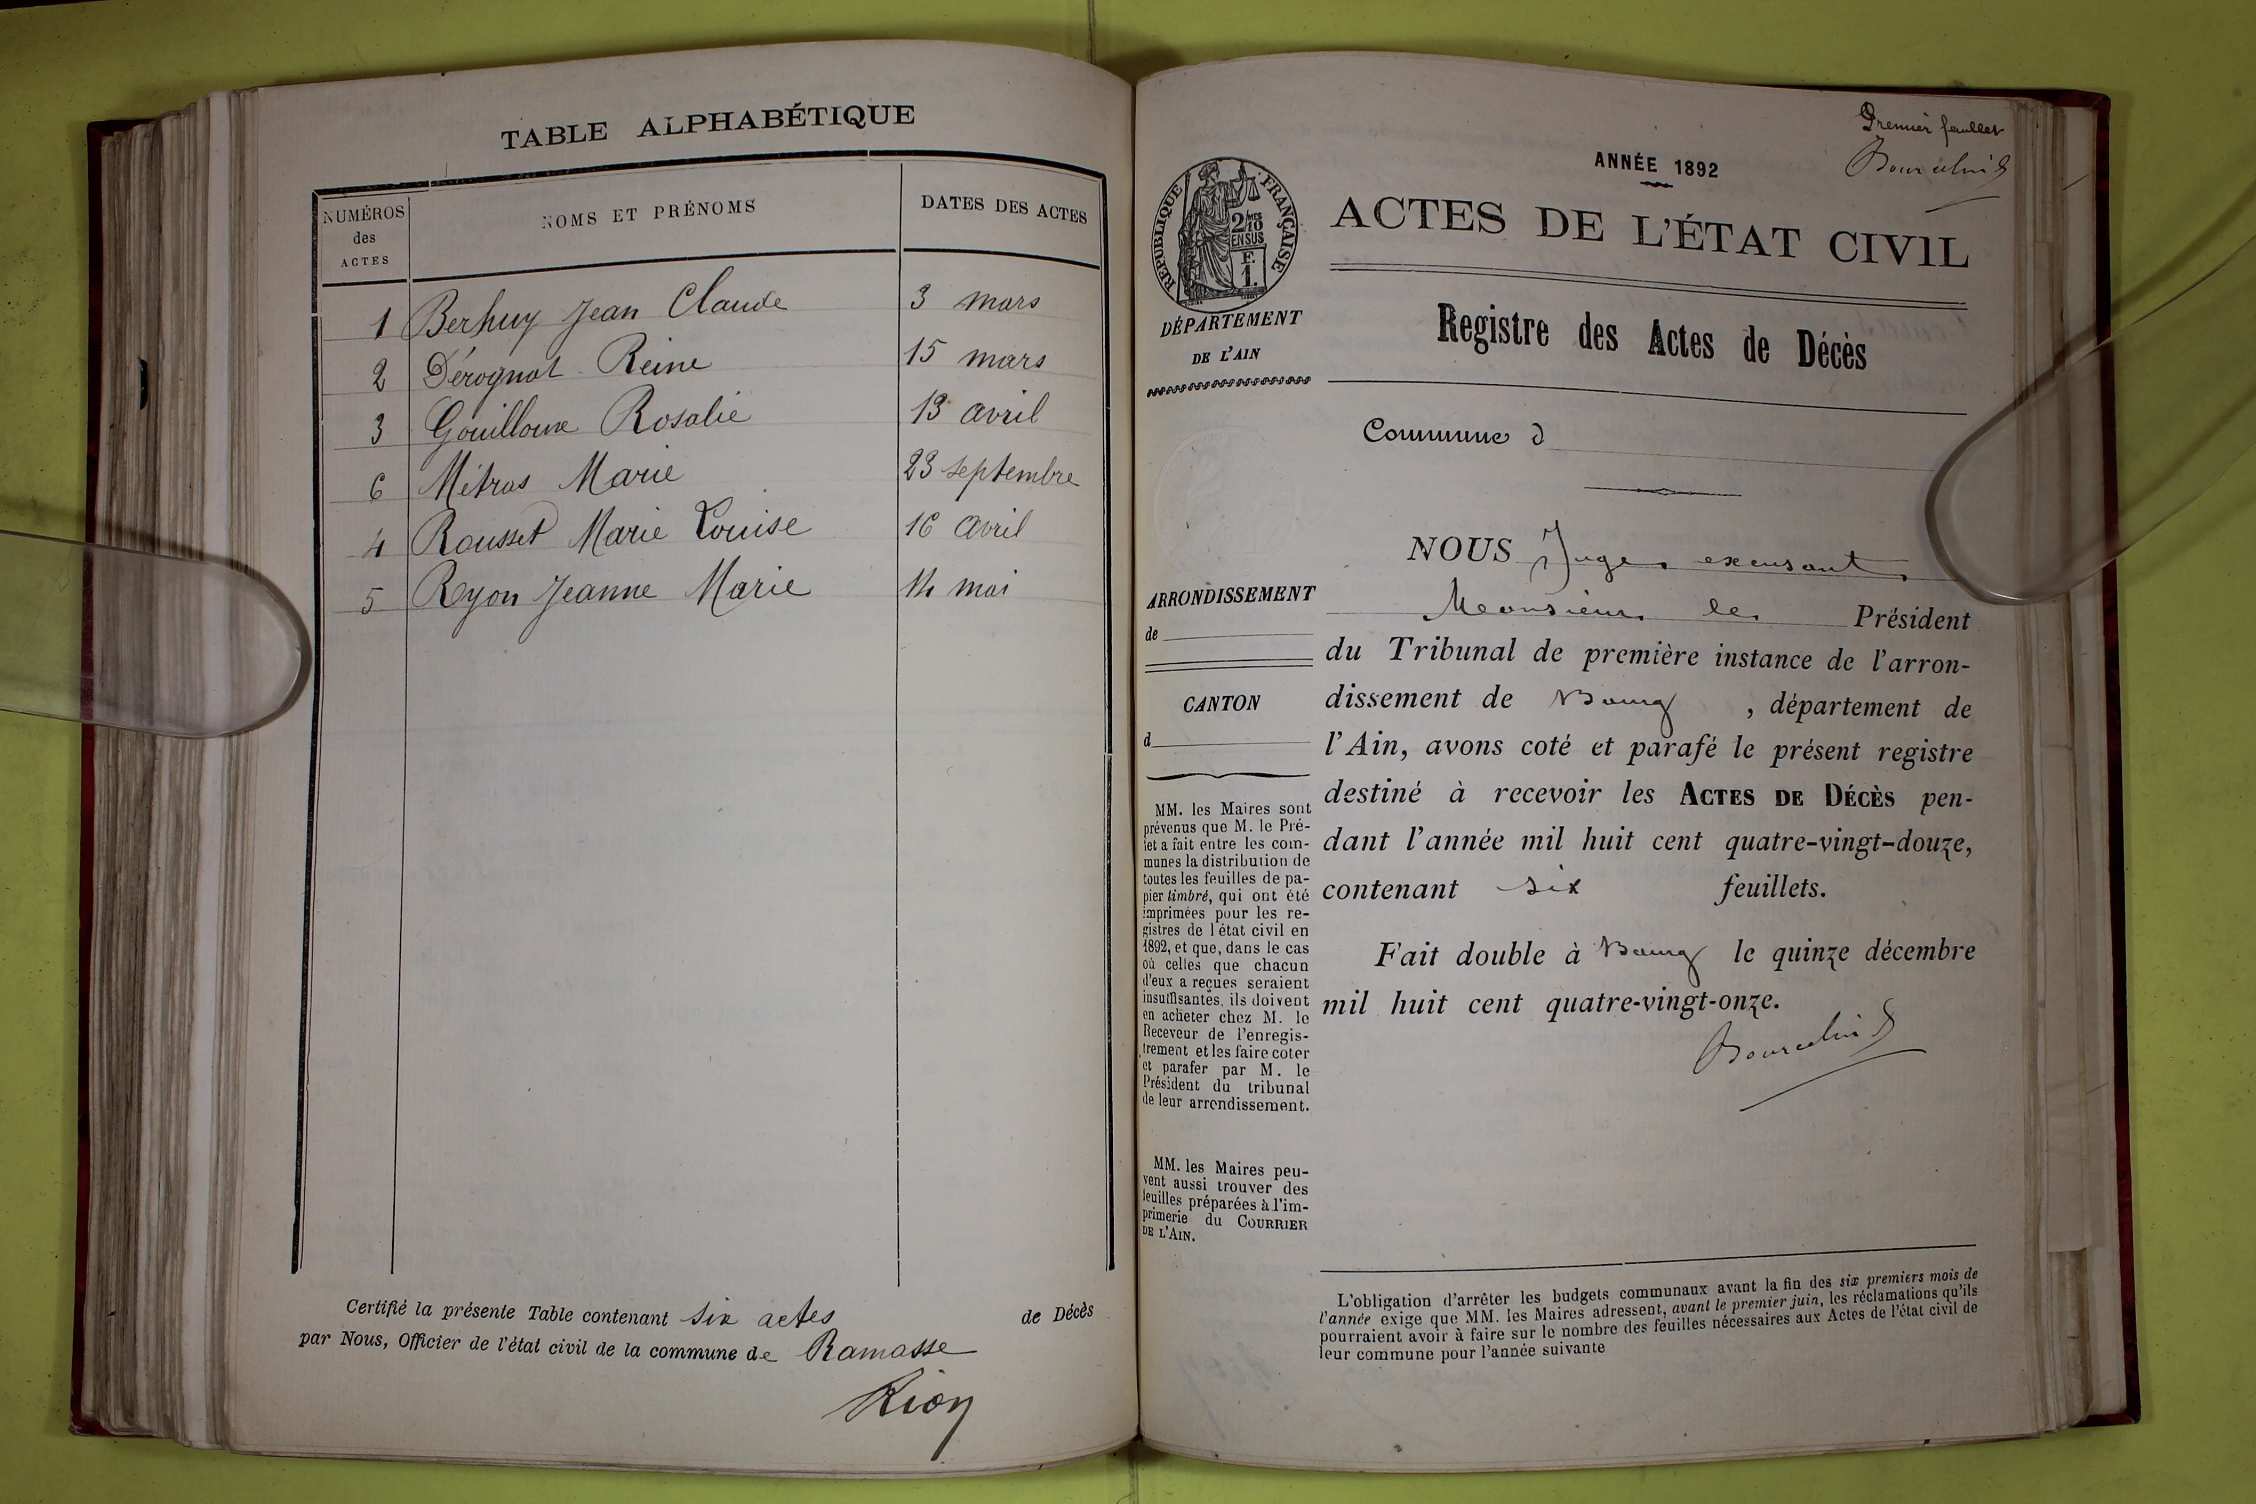 TABLE ALPHABÉTIQUE
NUMÉROS des ACTES NOMS ET PRÉNOMS DATES DES ACTES
1 Berhuy Jean Claude 3 mars
2 Dérognat Reine 15 mars
3 Gouilloux Rosalie 13 avril
6 Mitras Marie 23 septembre
4 Rousset Marie Louise 16 avril
5 Ryon Jeanne Marie 14 mai
Certifié la présente Table contenant six actes de Décès
par Nous, Officier de l'état civil de la commune de Ramasse
Rion
Premier feuillet
ANNÉE 1892
ACTES DE L'ÉTAT CIVIL
RÉPUBLIQUE FRANÇAISE
2/10 EN SUS
F. 1.
DÉPARTEMENT
DE L'AIN
Registre des Actes de Décès
Commune d
NOUS Juge excusant
Monsieur le Président
du Tribunal de première instance de l'arron-
dissement de Bourg, département de
l'Ain, avons coté et parafé le présent registre
destiné à recevoir les ACTES DE DÉCÈS pen-
dant l'année mil huit cent quatre-vingt-douze,
contenant six feuillets.
Fait double à Bourg le quinze décembre
mil huit cent quatre-vingt-onze.
ARRONDISSEMENT
de
CANTON
d
MM. les Maires sont
prévenus que M. le Pré-
fet a fait entre les com-
munes la distribution de
toutes les feuilles de pa-
pier timbré, qui ont été
imprimées pour les re-
gistres de l'état civil en
1892, et que, dans le cas
où celles que chacun
d'eux a reçues seraient
insuffisantes, ils doivent
en acheter chez M. le
Receveur de l'enregis-
trement et les faire coter
et parafer par M. le
Président du tribunal
de leur arrondissement.
MM. les Maires peu-
vent aussi trouver des
feuilles préparées à l'im-
primerie du COURRIER
DE L'AIN.
L'obligation d'arrêter les budgets communaux avant la fin des six premiers mois de
l'année exige que MM. les Maires adressent, avant le premier juin, les réclamations qu'ils
pourraient avoir à faire sur le nombre des feuilles nécessaires aux Actes de l'état civil de
leur commune pour l'année suivante